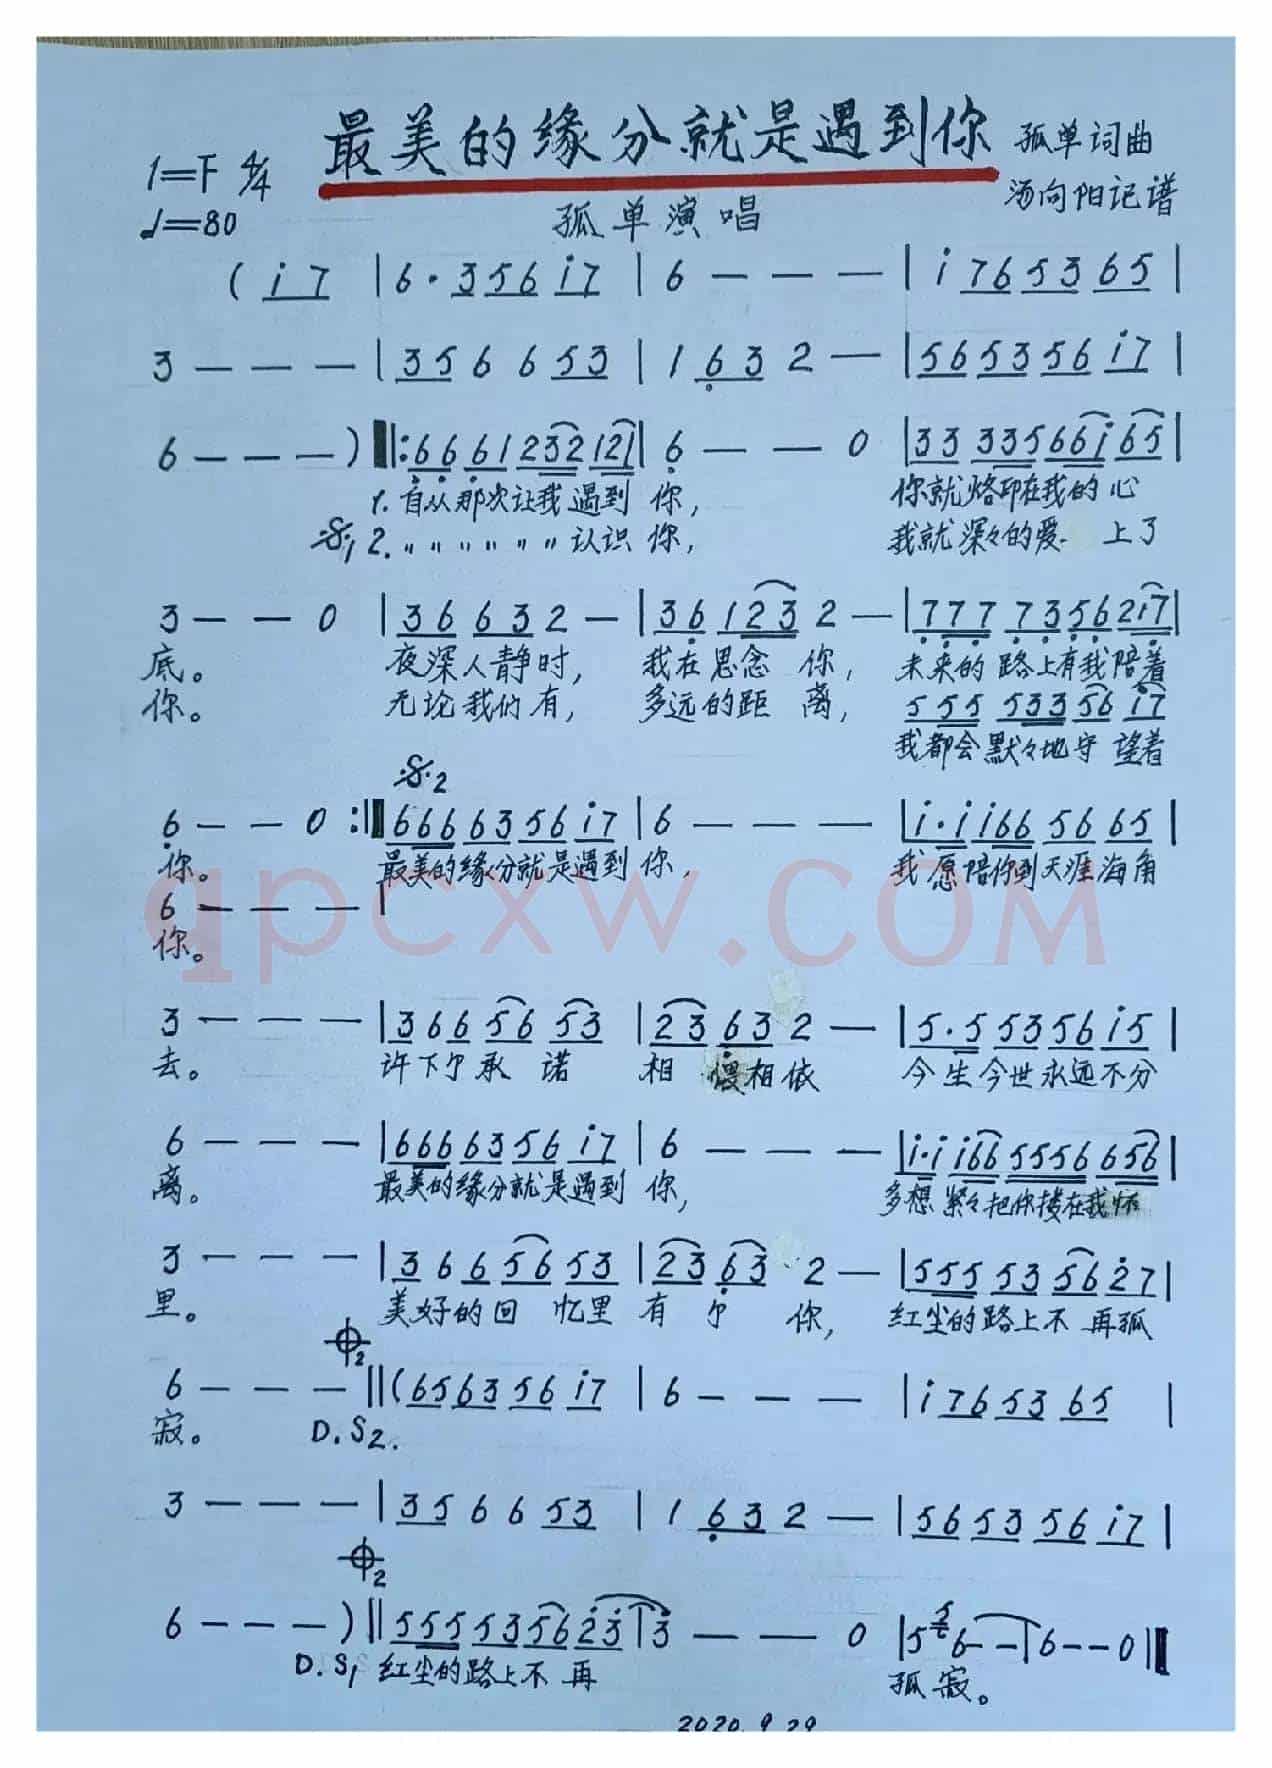 最美的缘分就是遇到你
1=F 4/4
孤单词曲
♩=80
汤向阳记谱
孤单演唱
( i 7 | 6 · 3 5 6 i 7 | 6 — — — | i 7 6 5 3 6 5 |
3 — — — | 3 5 6 6 5 3 | 1 6 3 2 — | 5 6 5 3 5 6 i 7 |
6 — — — ) ‖: 6 6 6 1 2 3 2 1 2 1 | 6 — — 0 | 3 3 3 3 5 6 6 i 6 5 |
1. 自从那次让我遇到 你, 你就烙印在我的心
𝄋1 2. 〃 〃 〃 〃 〃 〃 认识 你, 我就深々的爱 上了
3 — — 0 | 3 6 6 3 2 — | 3 6 1 2 3 2 — | 7 7 7 7 3 5 6 2 i 7 |
底。 夜深人静时, 我在思念 你, 未来的路上有我陪着
你。 无论我们有, 多远的距 离, 5 5 5 5 3 3 5 6 i 7
我都会默々地守 望着
𝄋2
6 — — 0 :‖ 6 6 6 6 3 5 6 i 7 | 6 — — — | i · i i 6 6 5 6 6 5 |
你。 最美的缘分就是遇到 你, 我愿陪你到天涯海角
6 — — — |
你。
qpcxw.com
3 — — — | 3 6 6 5 6 5 3 | 2 3 6 3 2 — | 5 · 5 5 3 5 6 i 5 |
去。 许下尔承 诺 相 偎相依 今生今世永远不分
6 — — — | 6 6 6 6 3 5 6 i 7 | 6 — — — | i · i i 6 6 5 5 5 6 6 5 6 |
离。 最美的缘分就是遇到 你, 多想紧々把你搂在我怀
3 — — — | 3 6 6 5 6 5 3 | 2 3 6 3 2 — | 5 5 5 5 3 5 6 2 7 |
里。 美好的回 忆里 有 尔 你, 红尘的路上不 再孤
𝄌2
6 — — — ‖ ( 6 5 6 3 5 6 i 7 | 6 — — — | i 7 6 5 3 6 5 |
寂。 D.S2.
3 — — — | 3 5 6 6 5 3 | 1 6 3 2 — | 5 6 5 3 5 6 i 7 |
𝄌2
6 — — — ) ‖ 5 5 5 5 3 5 6 2 3 | 3 — — 0 | 5 6 — — | 6 — — 0 ‖
D.S1 红尘的路上不 再 孤 寂。
2020.9.29